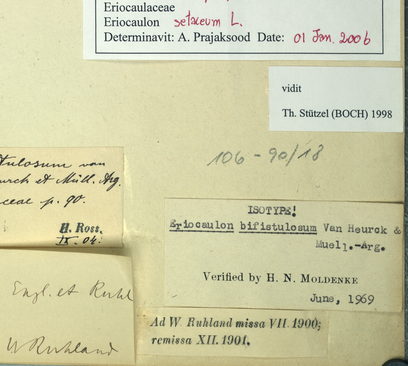 Eriocaulaceae
Eriocaulon setaceum L.
Determinavit: A. Prajaksood Date: 01 Jan. 2006
vidit
Th. Stützel (BOCH) 1998
106-90/18
tulosum van
urck et Müll. Arg.
ceae p. 90.
H. Ross.
IX. 04.
ISOTYPE!
Eriocaulon bifistulosum Van Heurck &
Muell.-Arg.
Verified by H. N. MOLDENKE
June, 1969
Engl. et Ruhl
W Ruhland
Ad W. Ruhland missa VII. 1900;
remissa XII. 1901.